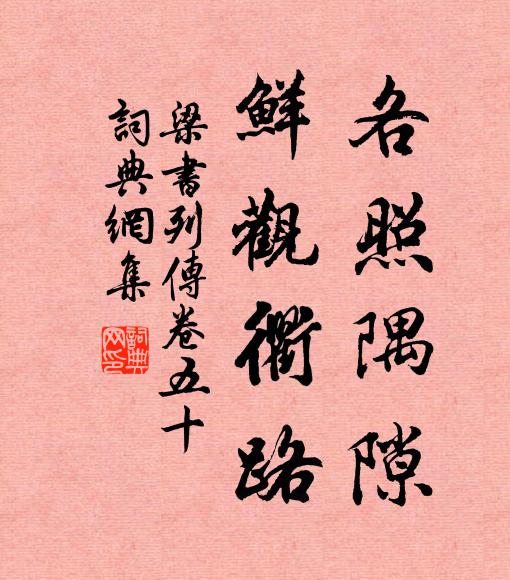 各照隅隙
鮮觀衢路
梁書列傳卷五十
詞典網集
詞典網印